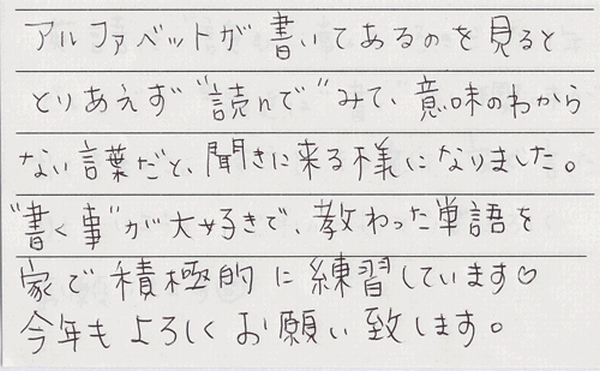 アルファベットが書いてあるのを見ると
とりあえず"読んで"みて、意味のわから
ない言葉だと、聞きに来る様になりました。
"書く事"が大好きで、教わった単語を
家で積極的に練習しています♡
今年もよろしくお願い致します。